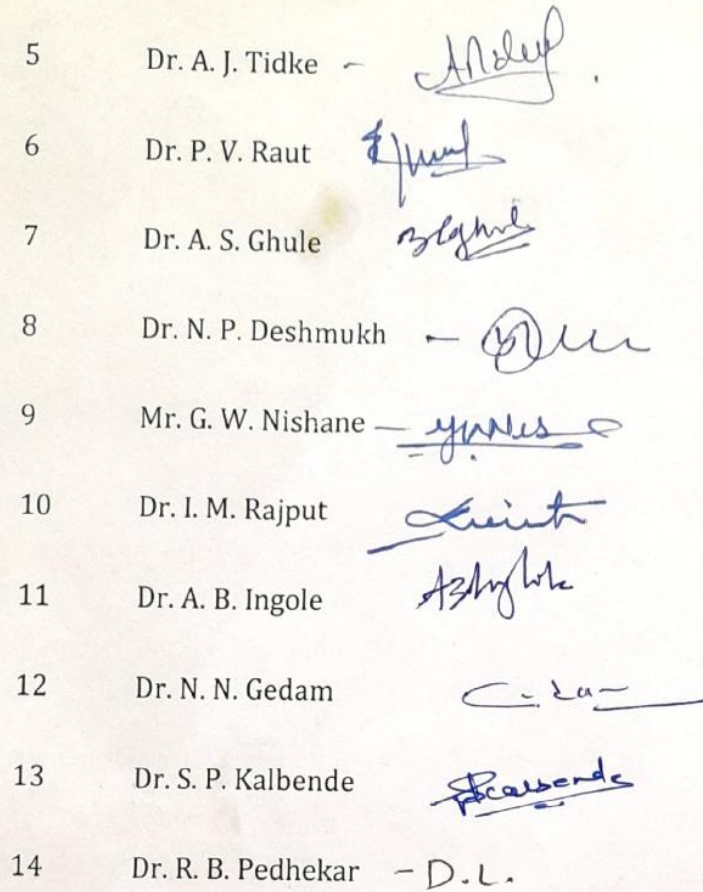 5 Dr. A. J. Tidke -
6 Dr. P. V. Raut
7 Dr. A. S. Ghule
8 Dr. N. P. Deshmukh -
9 Mr. G. W. Nishane -
10 Dr. I. M. Rajput
11 Dr. A. B. Ingole
12 Dr. N. N. Gedam
13 Dr. S. P. Kalbende
14 Dr. R. B. Pedhekar - D.L.